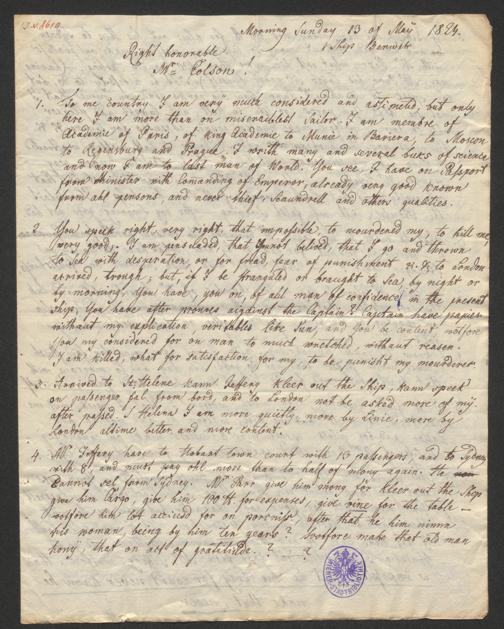 Morning Sunday 13 of May 1824.
Ships Berwick
Right honorable
Mr. Colson!
1. To me country I am very much considered and astimetid, but only
here I am more than on miserablest Sailor. I am membre of
Academie of Paris, of King Academie to Munic in Bariera, to Moscow
to Regensburg and Prague, I worth many and several buks of science
and now I am to last man of World. You see I have on Pasport
from Minister with Comanding of Emperor, already very good known
from abl persons and never thief, Scaundrell and others qualities.
2. You speek right, very right, that impossible to mourdered my, to kill me
very good; I am persuaded that cannot belived, that I go and thrown
to Sea with desperation or for fear of punishment to London
arrived, trough; but if I be strangled or braught to Sea by night or
by morning, You have, you on, of all man of confidence, in the present
Ship, You have after prooves against the Captain? Captain have papier
without my explication veritables like Sun, and You be content
You my considered for on man to much wretched, without reason.
I am killed, what for satisfaction for my, to be punisht my mourderer
3. Arrived to St. Helene kann Jaffery Kleer out the Ship, kann speek
on passenger fal from bord, and to London not be asked more of my
after passed St Helena I am more quietly, more by Linie, more by
London altime better and more content.
4. Mr. Jeffery have to Hobart Town court with 13 passengers, and to Sydney
with 8, and must pay ohl more than to half of mony again. He
Cannot sel from Sydney. Mr give him mony for Kleer out the Ships
give him Cargo, give him 100 for expenses, give vine for the table —
wotfore him on porcnils, after that he him nimm
his woman, being by him ten years? Wotfore make that old man
hony, that on act of gratitude. ? ?